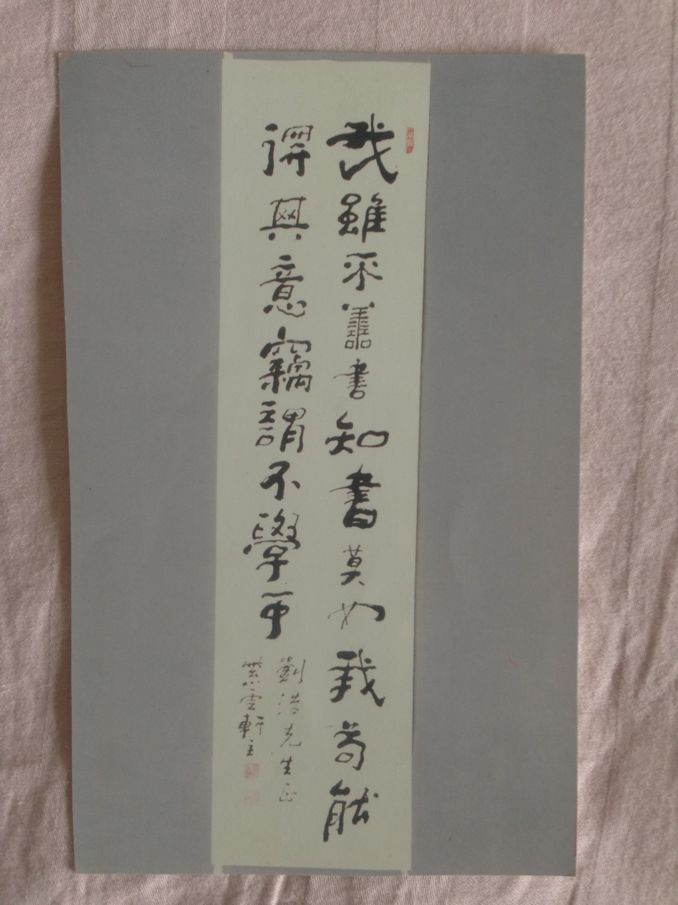 我雖不善書知書莫如我苟能
其意竊謂不學可
劉浩先生正
紫雲軒主